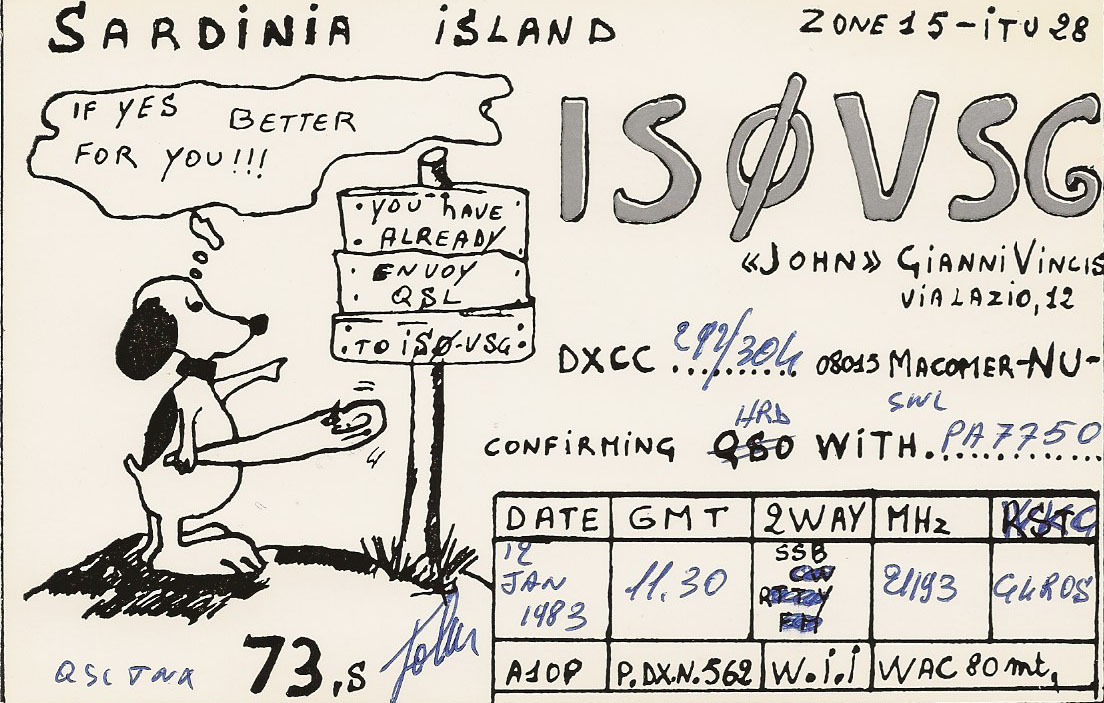 SARDINIA ISLAND
ZONE 15-ITU 28
IF YES BETTER
FOR YOU!!!
YOU HAVE
ALREADY
ENVOY
QSL
TO ISØ-VSG
ISØVSG
«JOHN» GIANNI VINCIS
VIA LAZIO, 12
DXCC 292/304 08015 MACOMER-NU-
SWL
HRD
CONFIRMING QSO WITH. PA7750
DATE GMT 2WAY MHz RST
12 JAN 1983
11.30
SSB
CW
RTTY
FM
21193
QSL TNX
73,s John
A1OP P.DX.N.562 W.i.i WAC 80 mt,